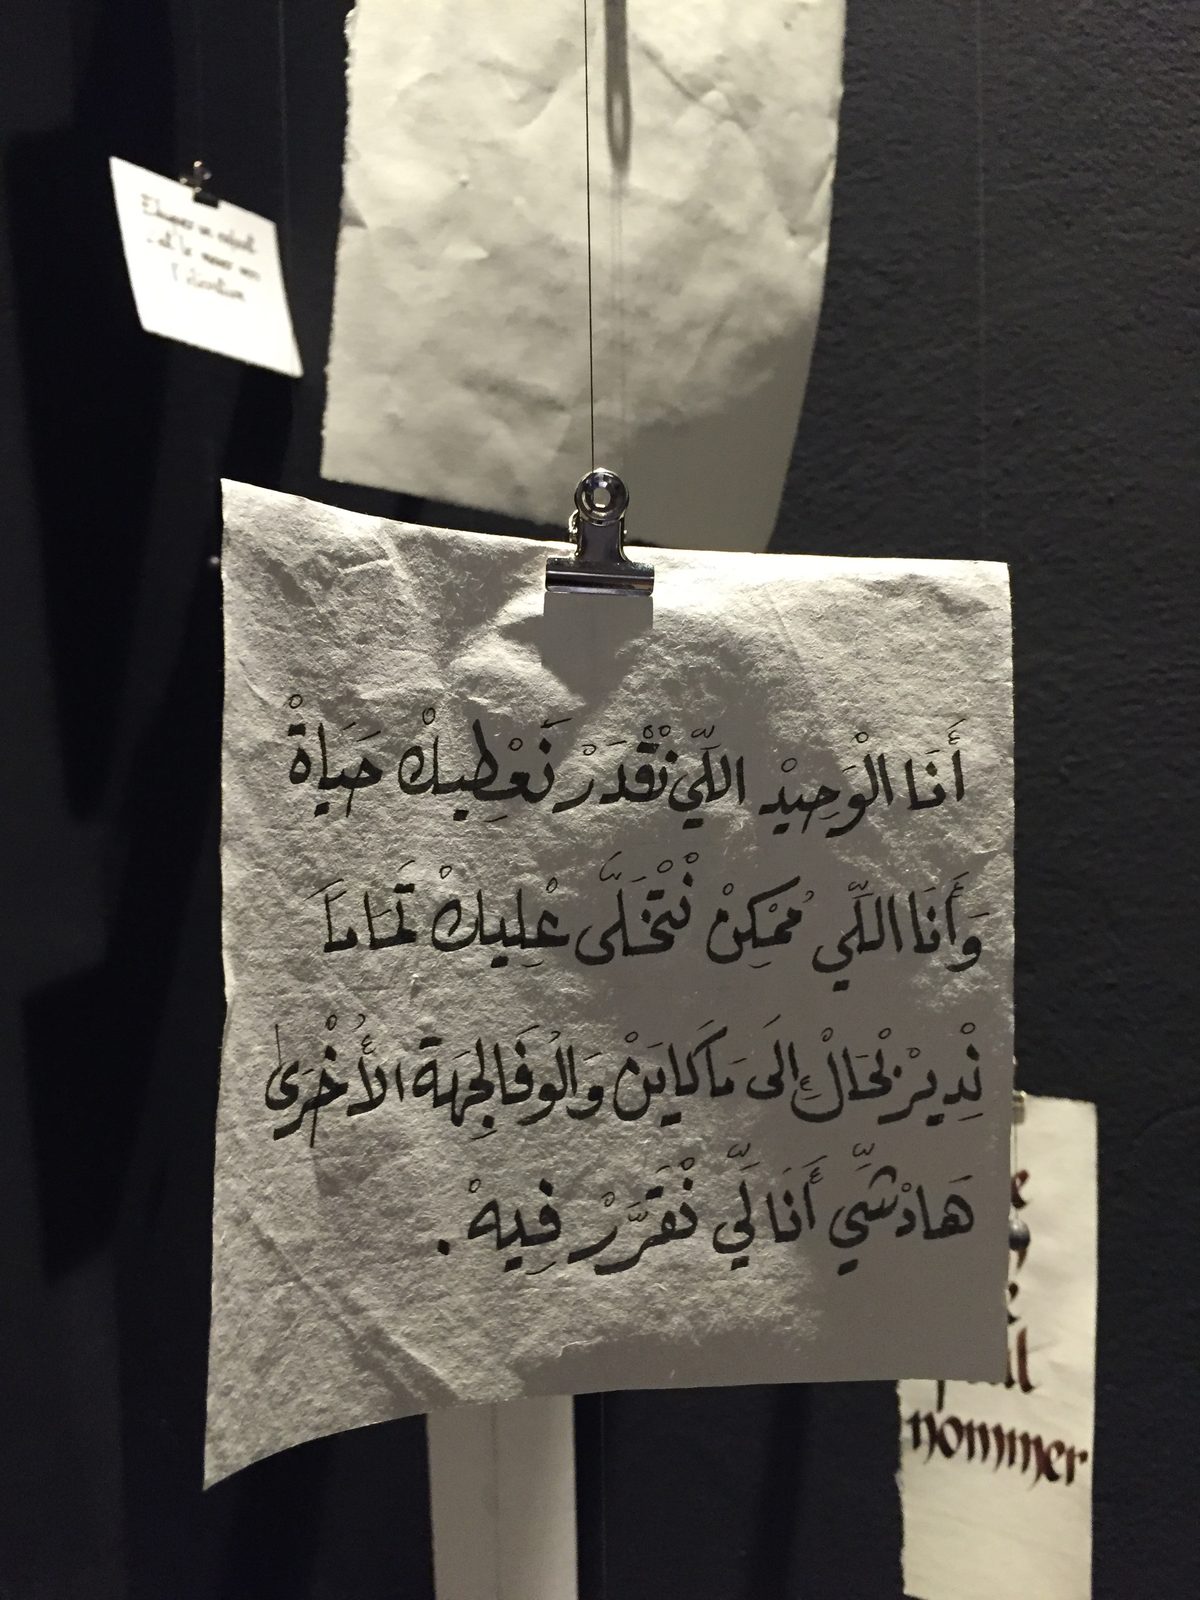 أَنَا الْوَحِيدْ اللِّي نْقْدَرْ نَعْطِيكْ حَيَاةْ
وَأَنَا اللِّي مُمْكِنْ نْتْخَلَّى عْلِيكْ تَمَامَا
نْدِيرْ بْحَالْ إِلَى مَا كَايَنْ وَالُو فَالجِهَة الأُخْرَى
هَادْشِّي أَنَا لِّي نْقَرَّرْ فِيهْ.
nommer